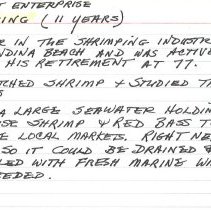 T ENTERPRISE
ING (11 YEARS)
R IN THE SHRIMPING INDUSTR
NDINA BEACH AND WAS ACTIVE
HIS RETIREMENT AT 77.
TCHED SHRIMP & STUDIED TH
A LARGE SEAWATER HOLDIN
SE SHRIMP & RED BASS TO
E LOCAL MARKETS. RIGHT NE
SO IT COULD BE DRAINED &
LED WITH FRESH MARINE WA
EEDED.